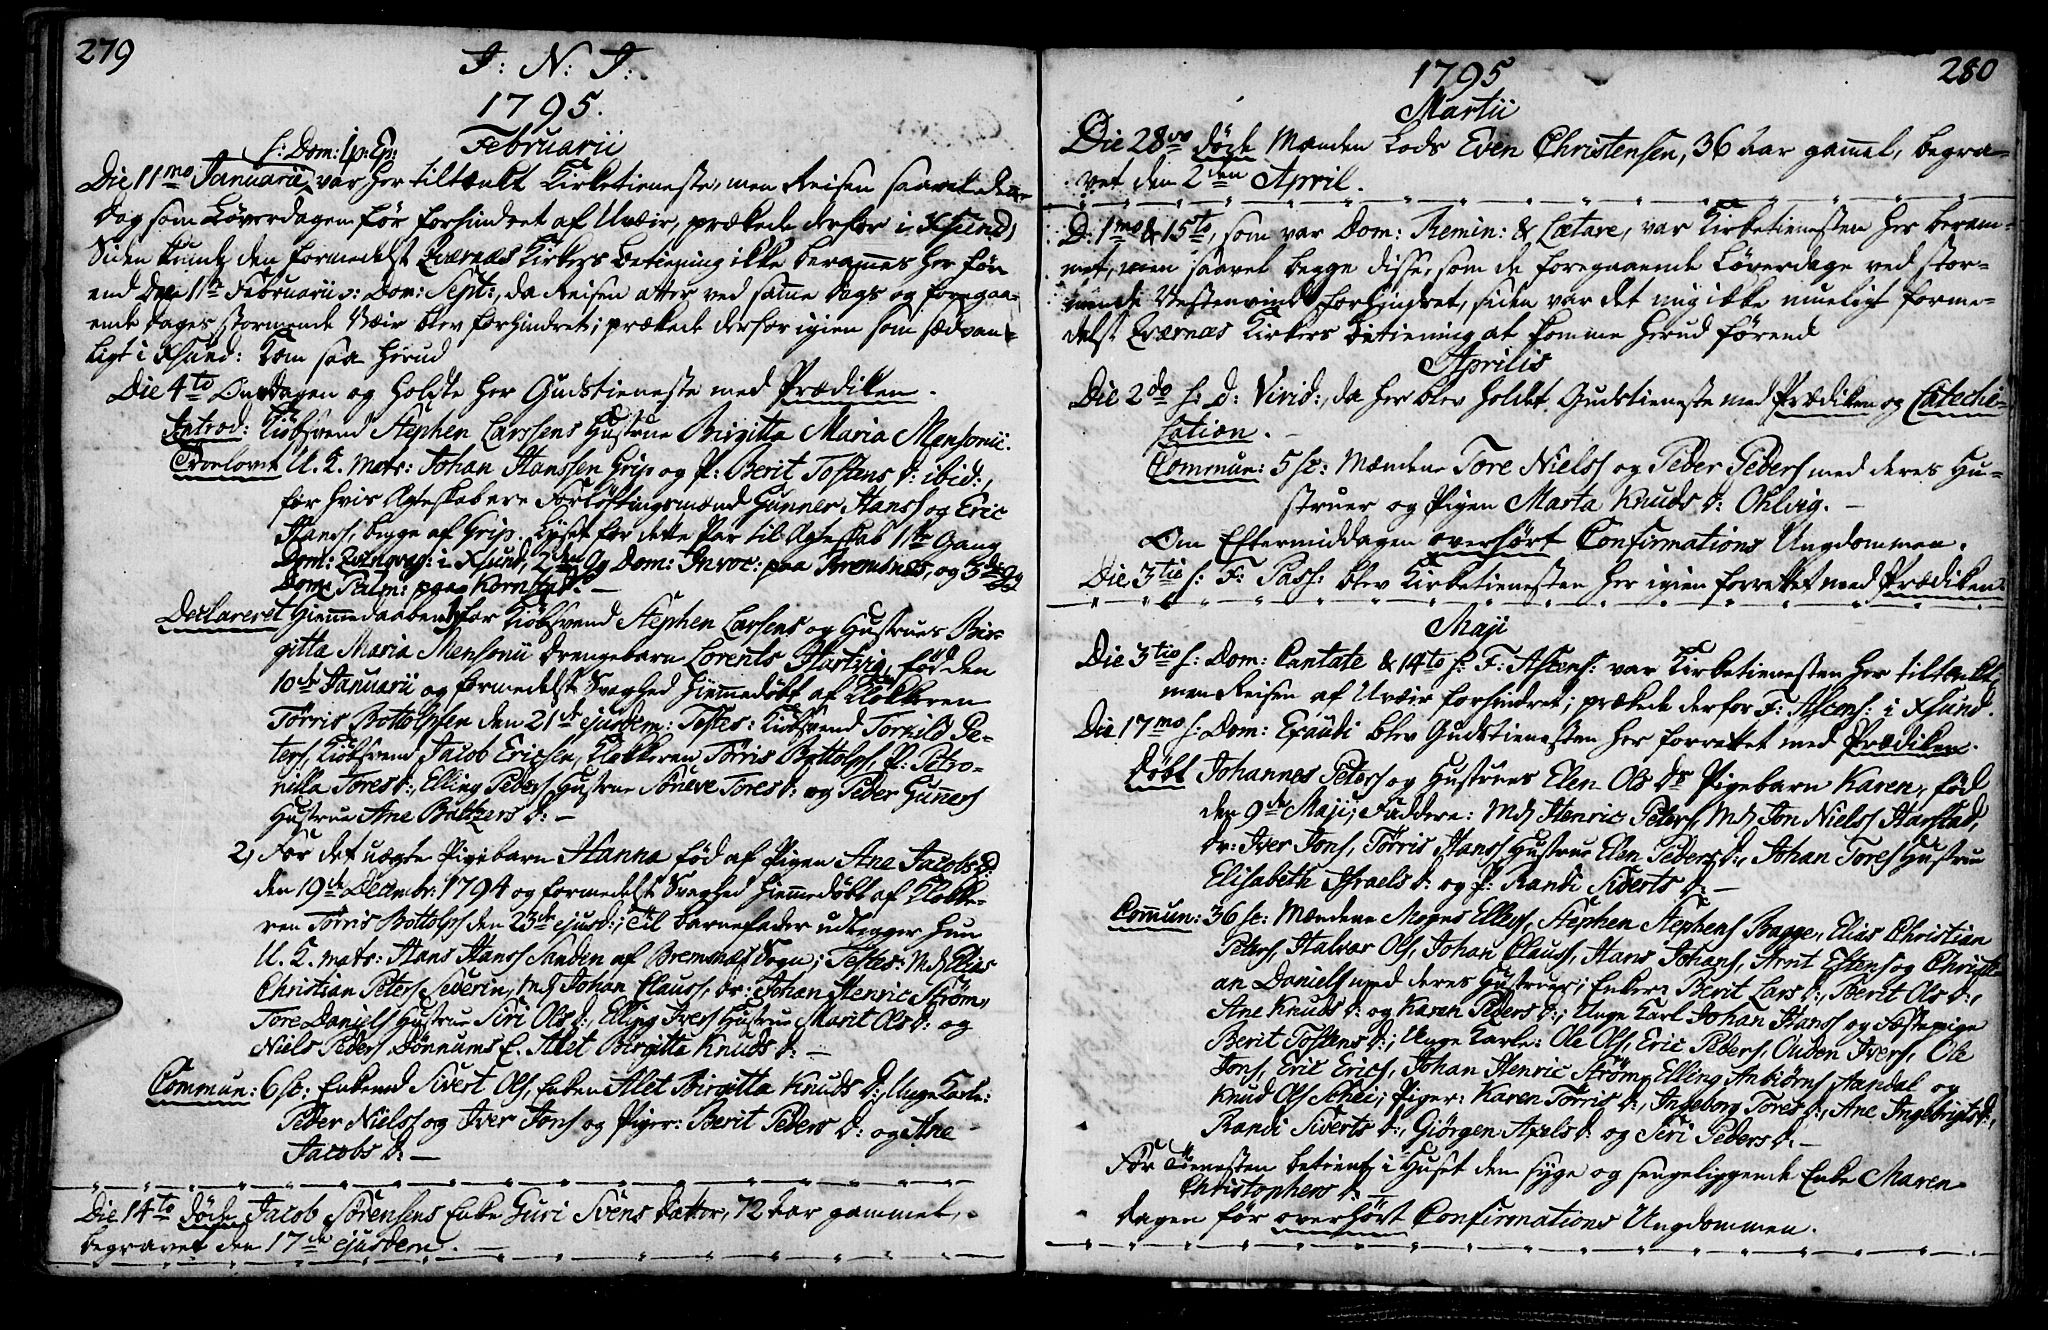 279
J: N: J:
1795.
Februarii
s: Dom: 1 p: Ep:
Die 11mo Januarii, var her tiltænkt Kirketieneste, men Reisen saavel denne
Dag som Løverdagen før forhindret af Uveir, prækede derfor i Xsund,
Siden kunde den formedelst Qværnæs Kirkes betiening ikke berammes her før
end Die 1ste Februarii s: Dom: Sept:, da Reisen atter ved samme Dags og foregaa-
ende Dages stormende Veir blev forhindret; prækede derfor igien som sædvan-
ligt i Xsund: Kom saa herud
Die 4to Onsdagen og holdte her Gudstieneste med Prædiken.
Introd: Kiøbsvend Stephen Larssens Hustrue Birgitta Maria Mensonii.
Troelovet U. K. mats: Johan Hanssen Grip og P: Berit Tostens D: ibid:,
for hvis Ægteskab ere Forløftningsmænd Gunner Hanss og Eric
Hanss, begge af Grip. Lyset for dette Par til Ægteskab 1ste Gang
Dom: Qvinqvag: i Xsund, 2den Gg Dom: Invoc: paa Bremsnæs, og 3die Gg
Dom: Palm: paa Kornstad. —
Declareret Hiemmedaaben 1, for Kiøbsvend Stephen Larsens og Hustrues Bir-
gitta Maria Mensonii Drengebarn Lorents Hartvig, fød den
10de Januarii og formedelst Svaghed hiemmedøbt af Klokkeren
Tørris Bottolfsen den 21de ejusdem: Testes: Kiøbsvend Torkild Pe-
ters, Kiøbsvend Jacob Ericsen, Klokkeren Tørris Bottolfs, P: Petro-
nilla Tores D:, Elling Peders Hustrue Sønneve Tores D: og Peder Gunners
Hustrue Ane Baltzers D: —
2, For det uægte Pigebarn Hanna fød af Pigen Ane Jacobs D:
den 19de Decembr: 1794 og formedelst Svaghed hiemmedøbt af Klokke-
ren Tørris Bottolfs den 23de ejusd:; Til Barnefader udlægger hun
U. K. mats: Hans Hanss Staden af Bremsnæs Sogn; Testes: Md Elias
Christian Peters Severin, Md Johan Clauss, Dr: Johan Henric Strøm,
Tore Daniels Hustrue Siri Ols D:, Elling Ivers Hustrue Marit Ols D: og
Niels Peders Dønnums E: Alet Birgitta Knuds D: —
Commun: 6 st: Enkemd Sivert Ols, Enken Alet Birgitta Knuds D:, Unge Karle:
Peder Nielss og Iver Jons og Piger: Berit Peders D: og Ane
Jacobs D: —
Die 14to døde Jacob Sørensens Enke Guri Svens Datter, 72 Aar gammel,
begravet den 17de ejusdem. —
1795
280
Martii
Die 28vo døde Manden Lods Even Christensen, 36 Aar gammel, begra-
vet den 2den April.
D: 1mo & 15to, som var Dom: Remin: & Lætare, var Kirketienesten her beram-
met, men saavel begge disse, som de foregaaende Løverdage ved stor-
mende Vestenvind forhindret, siden var det mig ikke mueligt forme-
delst Qværnæs Kirkes Betiening at komme herud førend
Aprilis
Die 2do s: D: Virid:, da her blev holdet Gudstieneste med Prædiken og Catechi-
sation. —
Commun: 5 st: Mændene Tore Nielss og Peder Peders med deres Hu-
struer og Pigen Marta Knuds D: Ohlvig. —
Om Eftermiddagen overhørt Confirmations Ungdommen.
Die 3tio s: F: Pass: blev Kirketienesten her igien forrettet med Prædiken.
Maji
Die 3tio s: Dom: Cantate & 14to s: F: Ascens: var Kirketienesten her tiltænkt,
men Reisen af Uveir forhindret; prækede derfor F: Ascens: i Xsund.
Die 17mo s: Dom: Exaudi blev Gudstienesten her forrettet med Prædiken.
Døbt Johannes Peters og Hustrues Elen Ols Dr Pigebarn Karen, fød
den 9de Maji; Faddere: Md Henric Peters, Md Jon Nielss Harstad,
Dr: Iver Jons, Tørris Hanss Hustrue Elen Peders D:, Johan Tores Hustrue
Elisabeth Israels D: og P: Randi Siverts D: —
Commun: 36 st: Mændene Mogns Ellevs, Stephen Stephens Bagge, Elias Christian
Peters, Halvar Ols, Johan Clauss, Hans Johans, Arnt Estens og Christi-
an Daniels med deres Hustruer; Enker: Berit Lars D:, Berit Ols D:,
Ane Knuds D: og Karen Peders D:; Unge Karl Johan Hanss og Fæstepige
Berit Tostens D:; Unge Karle: Ole Ols, Eric Peders, Ouden Ivers, Ole
Jons, Eric Erics, Johan Henric Strøm, Elling Anbiørns Aandal og
Knud Ols Schei; Piger: Karen Tørris D:, Ingeborg Tores D:, Ane Ingebrigts D:,
Randi Siverts D:, Giørgen Axels D: og Siri Peders D: —
Før Tienesten betient i Huset den syge og sengeliggende Enke Maren
Christophers D: —
Dagen før overhørt Confirmations Ungdommen.